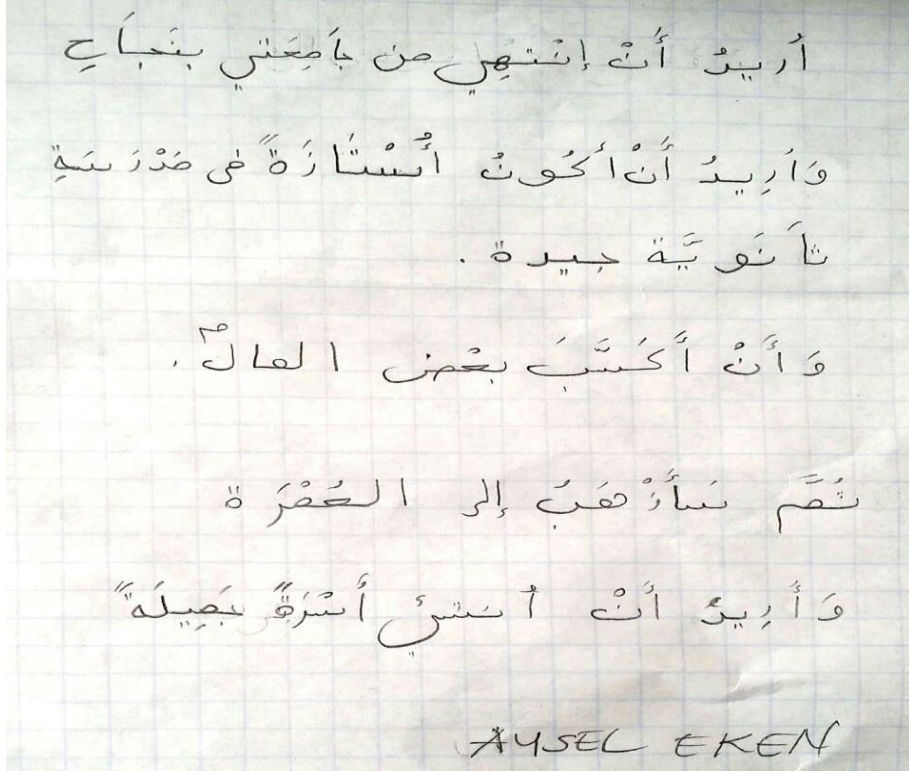 أُريدُ أَنْ إنْتهِي من جَامِعَتي بنَجاَحِ
وَاَرِيدُ أَنْ أكُونُ اُسْتَازَةً فى مَدْرَسَةِ
ثاَنَويَّة جيدة .
وَ أَنْ أَكَسَّبَ بعْض المالٌ .
ثُمَّ سَأَذْهَبُ إلى العُمْرَة
وَ أَرِيدُ أَنْ أُنشئ أُسْرَةً جَمِيلَةً
AYSEL EKEN